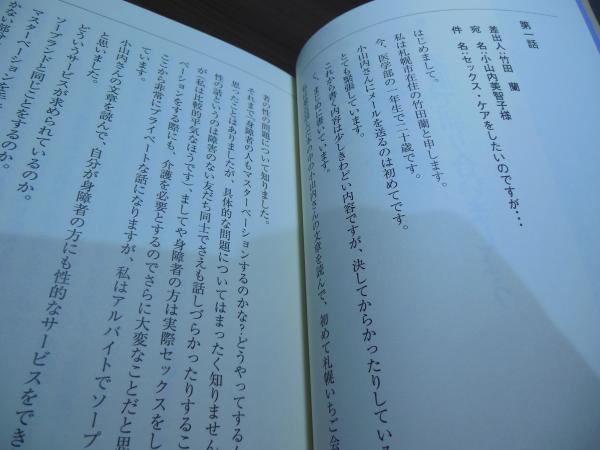 第一話
差出人：竹田　蘭
宛　名：小山内美智子様
件　名：セックス・ケアをしたいのですが・・・
はじめまして。
私は札幌市在住の竹田蘭と申します。
今、医学部の一年生で二十歳です。
小山内さんにメールを送るのは初めてです。
とても緊張しています。
これから書く内容は少しきわどい内容ですが、決してからかったりしている
く、まじめに書いています。
の中の小山内さんの文章を読んで、初めて札幌いちご会
者の性の問題について知りました。
それまで「身障者の人もマスターベーションするのかな？どうやってする
思ったことはありましたが、具体的な問題についてはまったく知りません
性の話というのは障害のない友だち同士でさえも話しづらかったりするこ
が（私は比較的平気なほうです）、ましてや身障者の方は実際セックスをし
ベーションをする際にも、介護を必要とするのでさらに大変なことだと思
ています。
ここから非常にプライベートな話になりますが、私はアルバイトでソープ
小山内さんの文章を読んで、自分が身障者の方にも性的なサービスをでき
と思いました。
どういうサービスが求められているのか。
ソープランドと同じことをするのか。
マスターベーションを
かない部